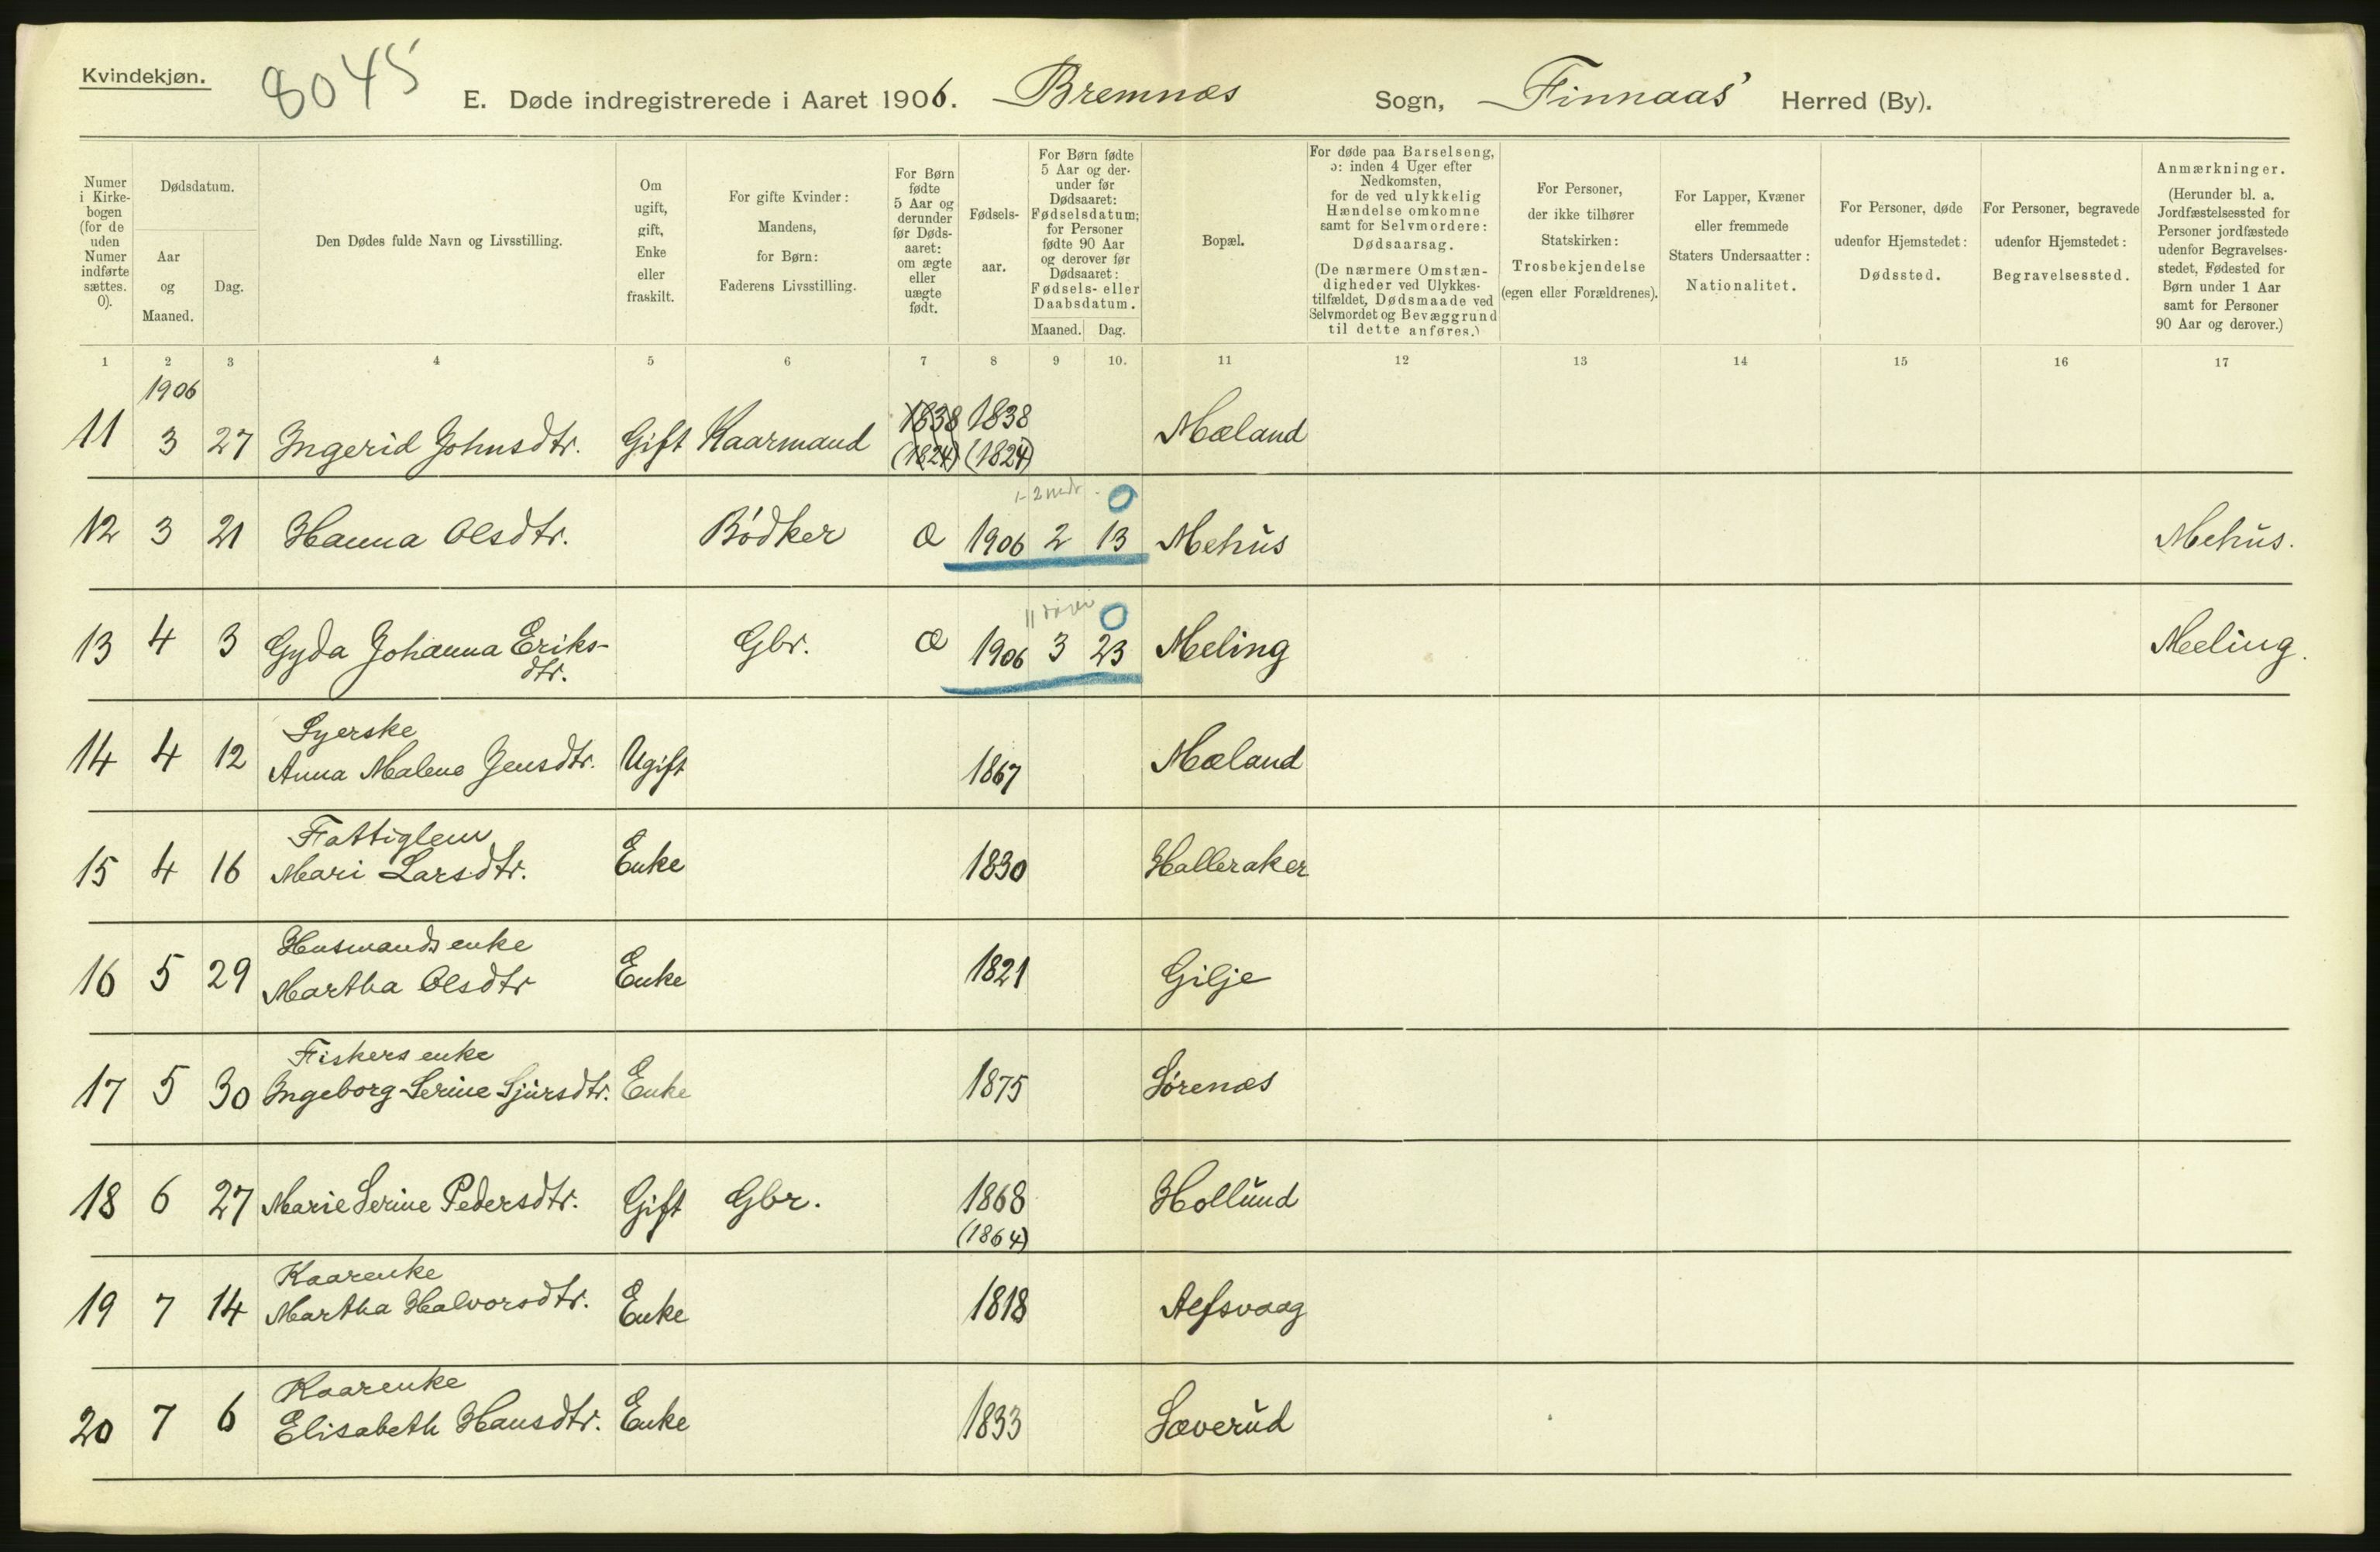 Kvindekjøn.
8045
E. Døde indregistrerede i Aaret 1906. Bremnæs Sogn, Finnaas Herred (By).
Numer i Kirke-bogen (for de uden Numer indførte sættes. 0).
Dødsdatum.
Aar og Maaned.
Dag.
Den Dødes fulde Navn og Livsstilling.
Om ugift, gift, Enke eller fraskilt.
For gifte Kvinder: Mandens, for Børn: Faderens Livsstilling.
For Børn fødte 5 Aar og derunder før Døds-aaret: om ægte eller uægte født.
Fødsels-aar.
For Børn fødte 5 Aar og der-under før Dødsaaret: Fødselsdatum; for Personer fødte 90 Aar og derover før Dødsaaret: Fødsels- eller Daabsdatum.
Maaned. Dag.
Bopæl.
For døde paa Barselseng, ɔ: inden 4 Uger efter Nedkomsten, for de ved ulykkelig Hændelse omkomne samt for Selvmordere: Dødsaarsag.
(De nærmere Omstæn-digheder ved Ulykkes-tilfældet, Dødsmaade ved Selvmordet og Bevæggrund til dette anføres.)
For Personer, der ikke tilhører Statskirken: Trosbekjendelse (egen eller Forældrenes).
For Lapper, Kvæner eller fremmede Staters Undersaatter: Nationalitet.
For Personer, døde udenfor Hjemstedet: Dødssted.
For Personer, begravede udenfor Hjemstedet: Begravelsessted.
Anmærkninger.
(Herunder bl. a. Jordfæstelsessted for Personer jordfæstede udenfor Begravelses-stedet, Fødested for Børn under 1 Aar samt for Personer 90 Aar og derover.)
1 2 3 4 5 6 7 8 9 10. 11 12 13 14 15 16 17
1906
1838 1838
11 3 27 Ingerid Johnsdtr. Gift Kaarmand (1824) (1824) Mæland
1-2 mdr. 0
12 3 21 Hanna Olsdtr. Bødker Æ 1906 2 13 Mehus Mehus.
11 0
13 4 3 Gyda Johanna Eriks- Gbr. Æ 1906 3 23 Meling Meling.
dtr.
Syerske
14 4 12 Anna Malene Jensdtr. Ugift 1867 Mæland
Fattiglem
15 4 16 Mari Larsdtr. Enke 1830 Halleraker
Husmands enke
16 5 29 Martha Olsdtr Enke 1821 Gilje
Fiskers enke
17 5 30 Ingeborg Serine Sjursdtr. Enke 1875 Sørenæs
18 6 27 Marie Serine Pedersdtr. Gift Gbr. 1868 Hollund
(1864)
Kaarenke
19 7 14 Martha Halvorsdtr. Enke 1818 Alfsvaag
Kaarenke
20 7 6 Elisabeth Hansdtr. Enke 1833 Sæverud